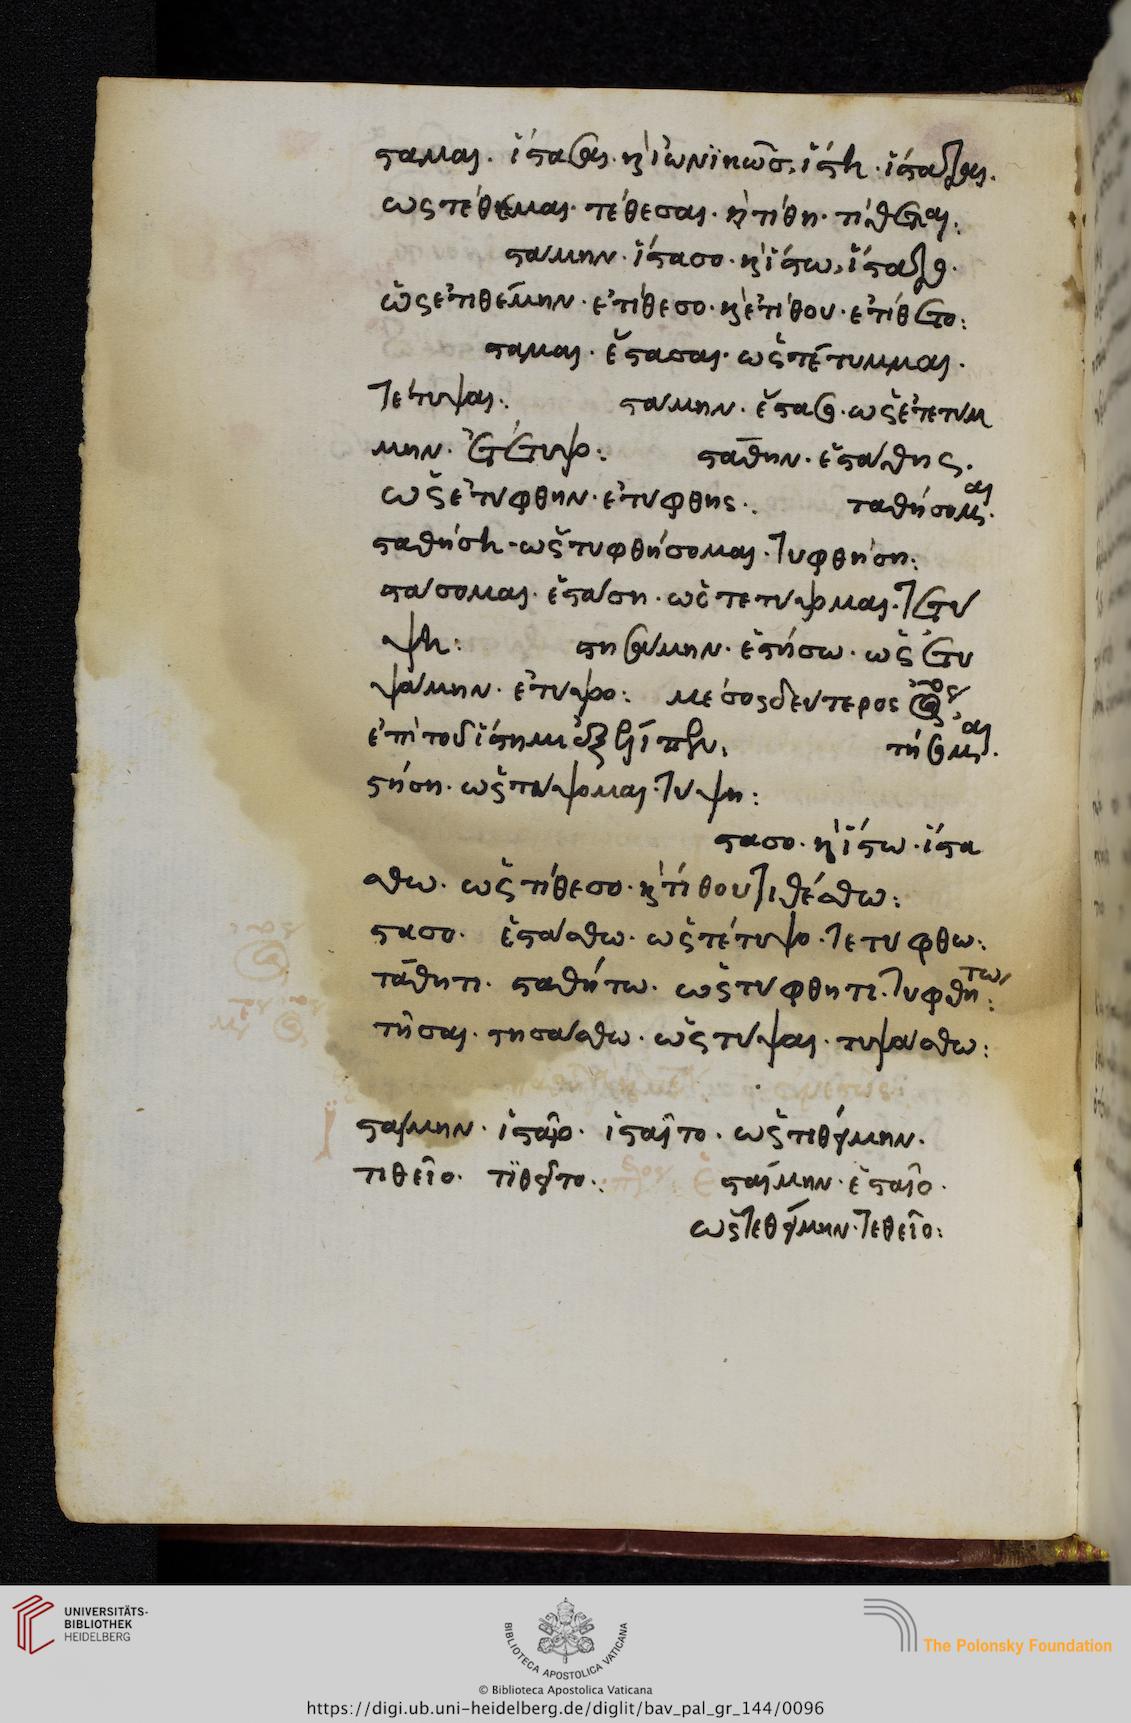 σταμαι. ἵστασαι. κ ἰωνικῶς, ἵστη. ἵσταται.
ὡς τέθεμαι. τέθεσαι. κ τίθη. τίθεται:
στάμην. ἵστασο. κ ἵστω, ἵστατο.
ὡς ἐτιθέμην. ἐτίθεσο. κ ἐτίθου. ἐτίθετο:
σταμαι. ἔστασαι. ὡς τέτυμμαι.
τέτυψαι:
στάμην. ἔστασο. ὡς ἐτετύμ
μην. ἐτέτυψο:
στάθην. ἐστάθης.
ὡς ἐτύφθην. ἐτύφθης:
ταθήσομαι.
σταθήση. ὡς τυφθήσομαι. τυφθήση:
στάσομαι. ἐστάση. ὡς τετύψομαι. τετύ
ψη:
στησάμην. ἐστήσω. ὡς ἐτυ
ψάμην. ἐτύψω: μέσος δεύτερος
ἐπὶ τοῦ ἵστημι
τήσομαι.
στήση. ὡς τύψομαι. τύψη:
στασο. κ ἵστω. ἱστά
σθω. ὡς τίθεσο. κ τίθου τιθέσθω:
στασο. ἐστάσθω. ὡς τέτυψο. τετύφθω:
τάθητι. σταθήτω. ὡς τύφθητι. τυφθήτω:
τῆσαι. στησάσθω. ὡς τύψαι. τυψάσθω:
σταίμην. ἱσταῖο. ἱσταῖτο. ὡς τιθείμην.
τιθεῖο. τιθεῖτο:
σταίμην. ἑσταῖο.
ὡς τεθείμην. τεθεῖο:
UNIVERSITÄTS-
BIBLIOTHEK
HEIDELBERG
BIBLIOTECA APOSTOLICA VATICANA
The Polonsky Foundation
© Biblioteca Apostolica Vaticana
https://digi.ub.uni-heidelberg.de/diglit/bav_pal_gr_144/0096